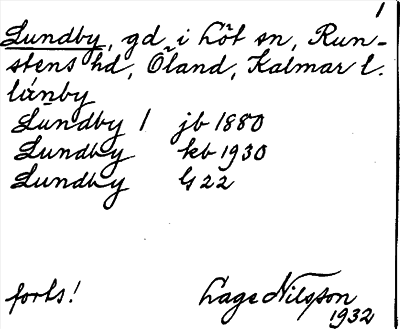 1
Lundby, gd i Löt sn, Run-
stens hd, Öland, Kalmar l.
lúnby
Lundby 1 jb 1880
Lundby kb 1930
Lundby G 22
forts! Lage Nilsson
1932